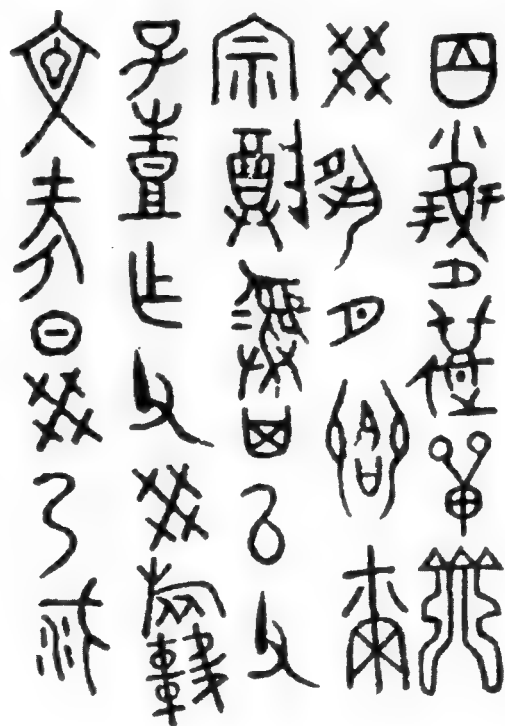 文考日癸乃沈
子壴作父癸旅
宗尊彝其以父
癸夙夕鄉爾
百婚遘單光